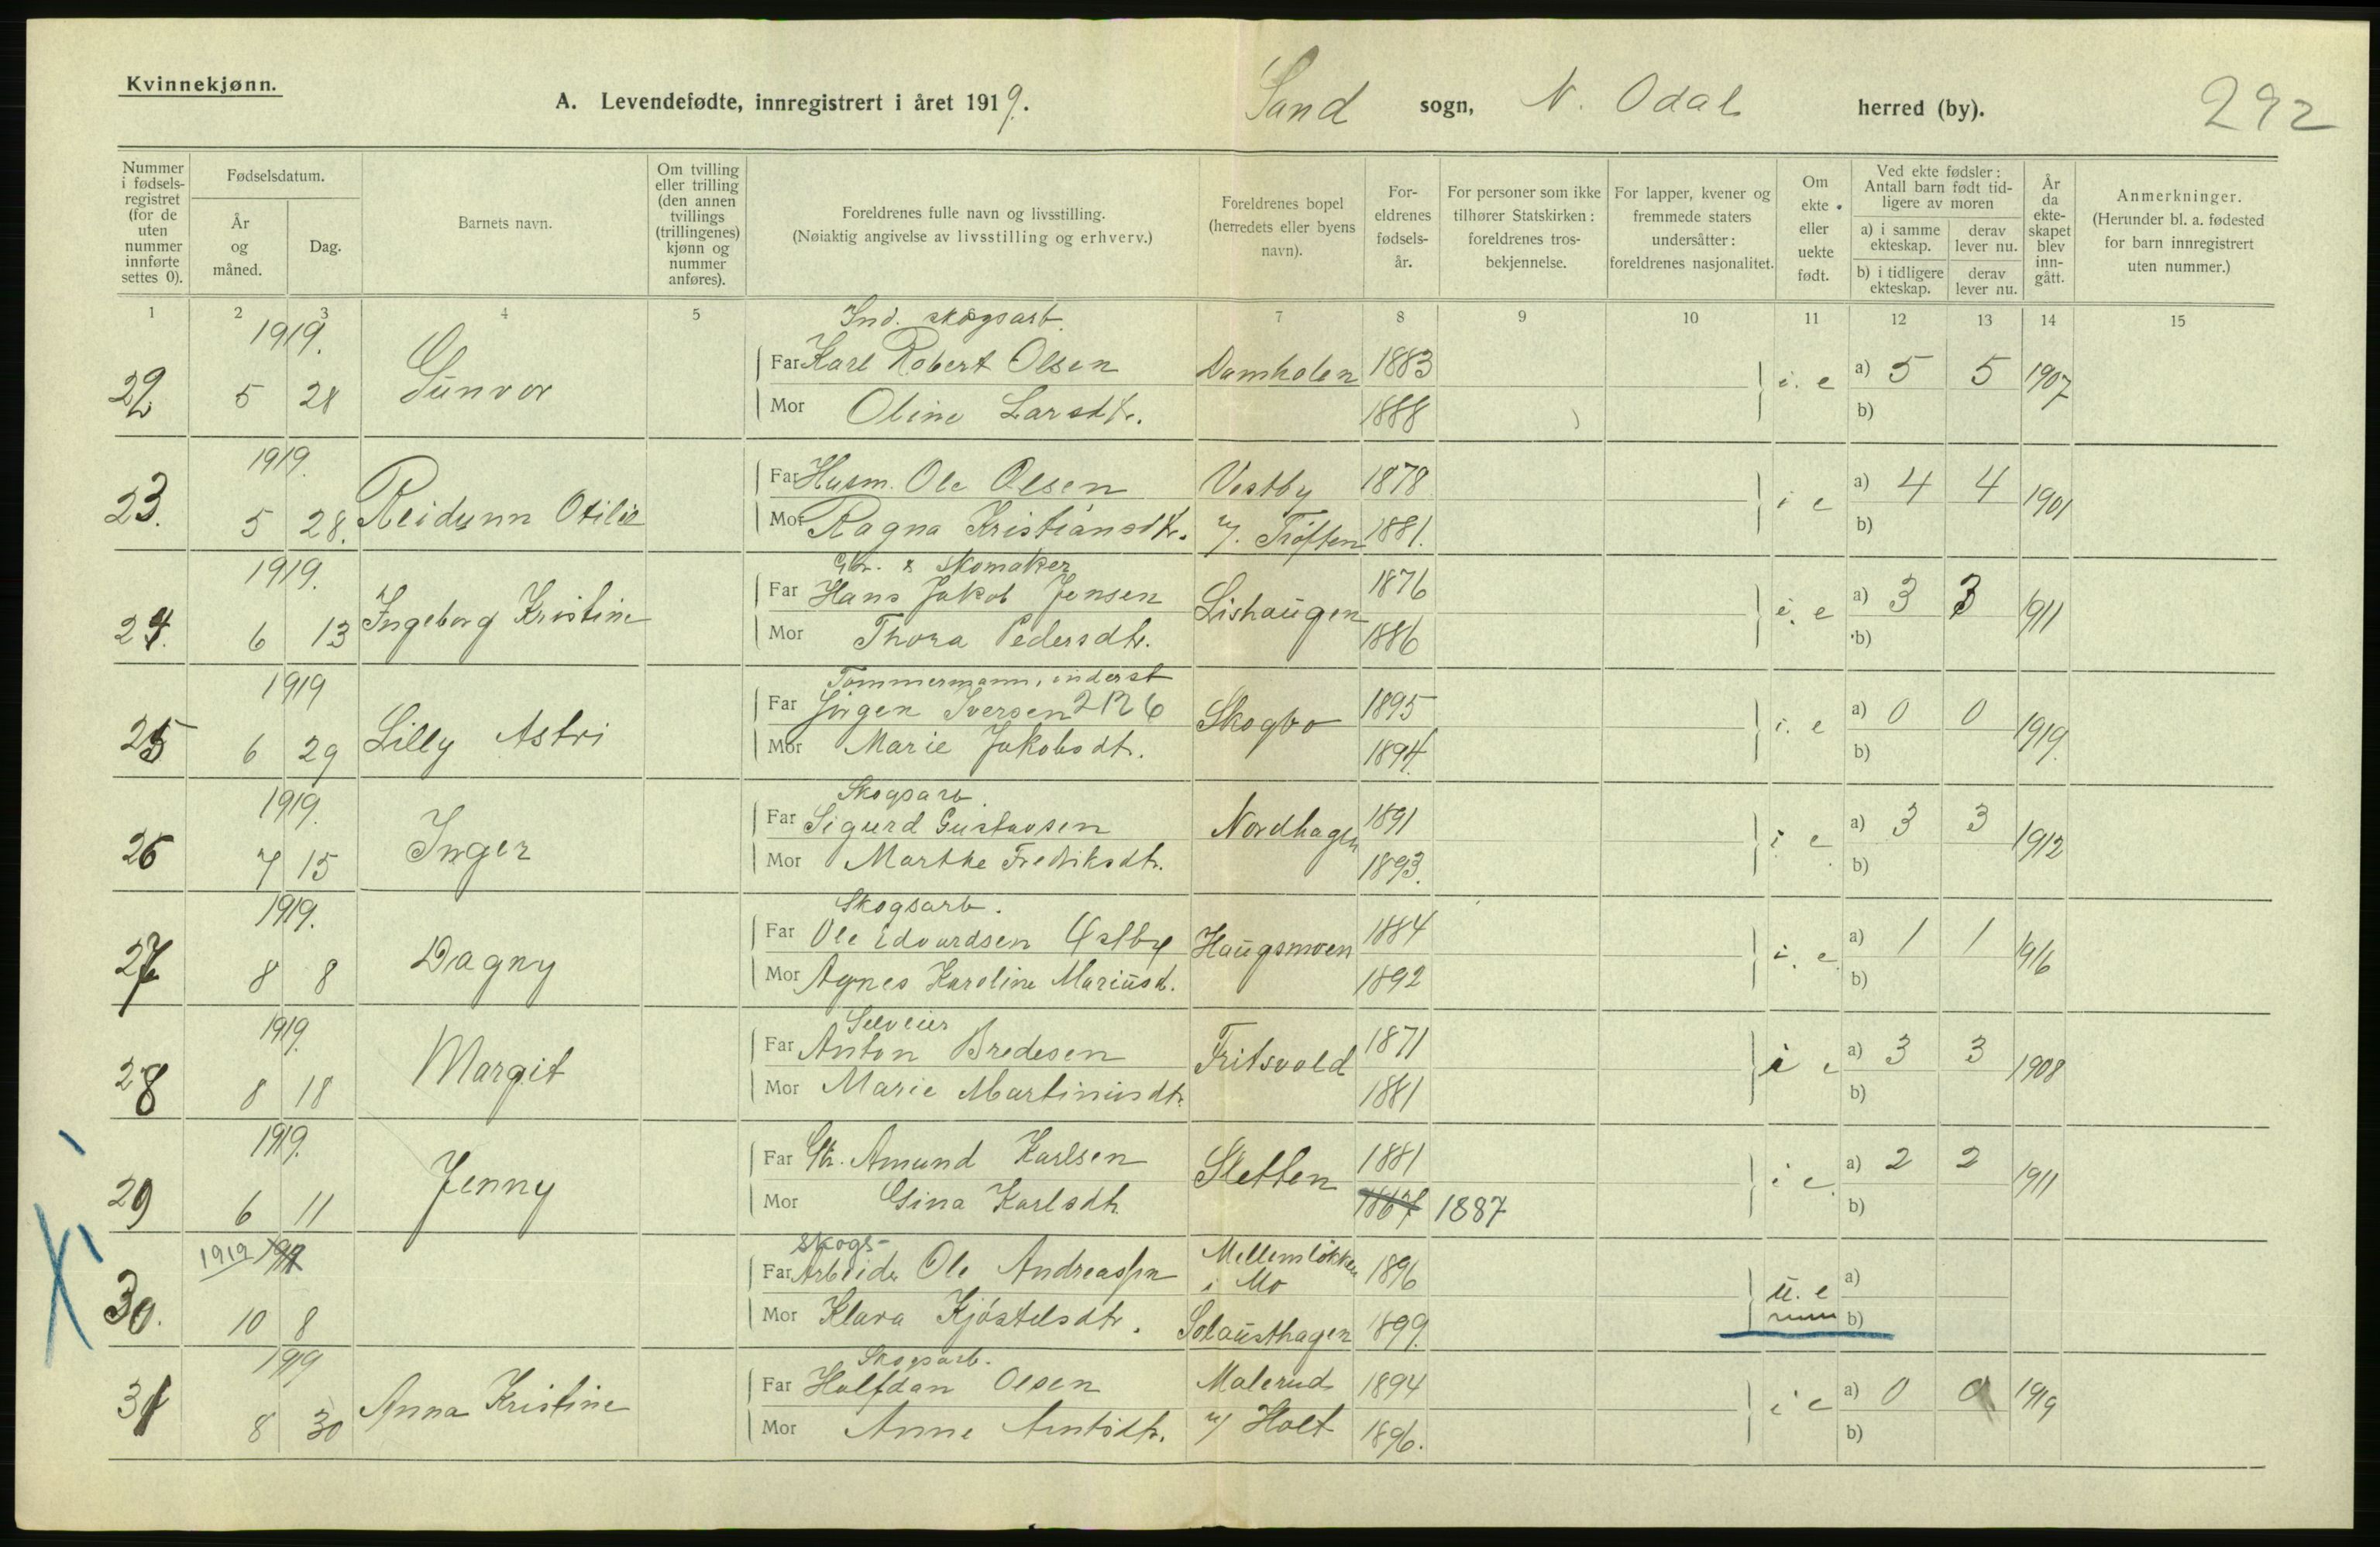 Kvinnekjønn.
A. Levendefødte, innregistrert i året 1919. Sand sogn, N. Odal herred (by). 292
Nummer i fødsels-registret (for de uten nummer innførte settes 0).
Fødselsdatum.
År og måned.
Dag.
Barnets navn.
Om tvilling eller trilling (den annen tvillings (trillingenes) kjønn og nummer anføres).
Foreldrenes fulle navn og livsstilling.
(Nøiaktig angivelse av livsstilling og erhverv.)
Foreldrenes bopel (herredets eller byens navn).
For-eldrenes fødsels-år.
For personer som ikke tilhører Statskirken: foreldrenes tros-bekjennelse.
For lapper, kvener og fremmede staters undersåtter: foreldrenes nasjonalitet.
Om ekte eller uekte født.
Ved ekte fødsler: Antall barn født tid-ligere av moren
a) i samme ekteskap.
derav lever nu.
b) i tidligere ekteskap.
derav lever nu.
År da ekte-skapet blev inn-gått.
Anmerkninger.
(Herunder bl. a. fødested for barn innregistrert uten nummer.)
1 2 3 4 5 7 8 9 10 11 12 13 14 15
1919. Ind. skogsarb.
Far Karl Robert Olsen Damholen 1883
22 5 28 Gunvor i. e a) 5 5 1907
Mor Oline Larsdtr. 1888 b)
1919.
Far Husm. Ole Olsen Vestby 1878
23. 5 28. Reidunn Otilie i e a) 4 4 1901
Mor Ragna Kristiansdtr. u/. Tröften 1881. b)
1919. Gbr. & Skomaker
Far Hans Jakob Jensen Lishaugen 1876
24. 6 13 Ingeborg Kristine i. e a) 3 3 1911
Mor Thora Pedersdtr. 1886 b)
1919 Tømmermann, inderst
Far Jörgen Iversen 2126 Skogbo 1895
25 6 29 Lilly Astri i. e a) 0 0 1919.
Mor Marie Jakobsdtr. 1894. b)
1919. Skogsarb.
Far Sigurd Gustavsen Nordhagen 1891
26 7 15 Inger i e a) 3 3 1912
Mor Marthe Fredriksdtr. 1893. b)
1919. Skogsarb.
Far Ole Edvardsen Östbye Haugsmoen 1884
27 8 8 Dagny i. e. a) 1 1 1916
Mor Agnes Karoline Mariusd. 1892 b)
1919. Selveier
Far Anton Bredesen Fritsvold 1871
28 8 18 Margit i e a) 3 3 1908
Mor Marie Martiniusdtr. 1881 b)
1919.
Far Gbr. Amund Karlsen Sletten 1881
29 6 11 Jenny i e. a) 2 2 1911
Mor Gina Karlsdtr. 1887 b)
1919 skogs-
Far Arbeider Ole Andreassen Mellemlökken i Mo 1896
30. 10 8 u. e a)
Mor Klara Kjöstelsdtr. Solausthagen 1899. b)
1919 Skogsarb.
Far Halfdan Olsen Malerud 1894
31 8 30 Anna Kristine i e a) 0 0 1919
Mor Anne Arntsdtr. u/ Holt 1896. b)